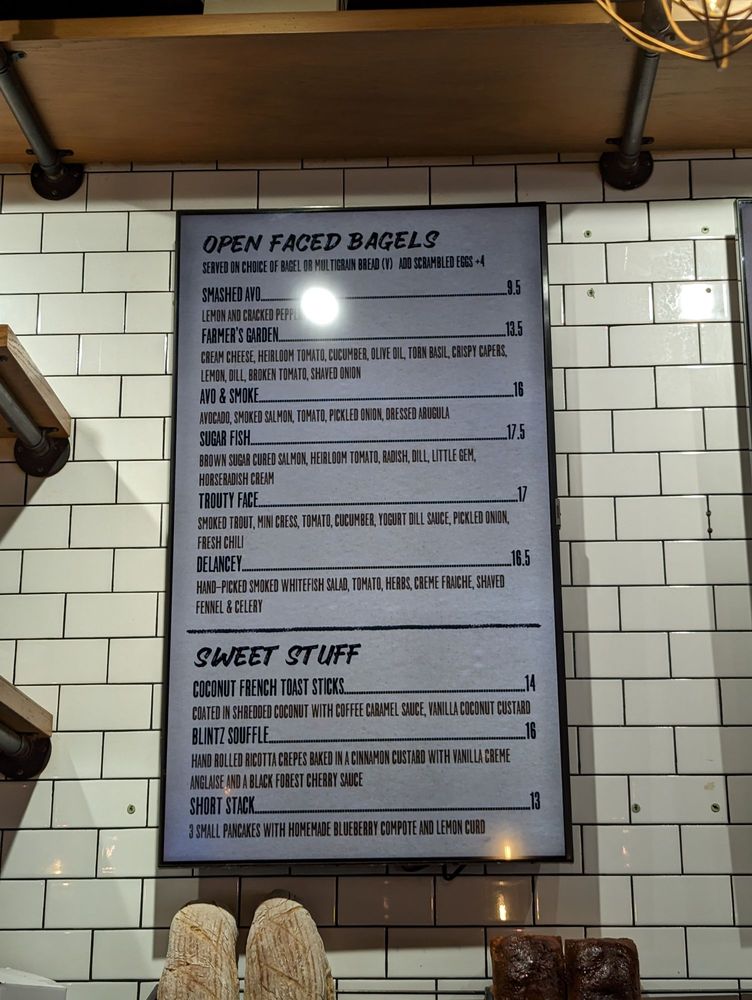 OPEN FACED BAGELS
SERVED ON CHOICE OF BAGEL OR MULTIGRAIN BREAD (V) ADD SCRAMBLED EGGS +4
SMASHED AVO 9.5
LEMON AND CRACKED
FARMER'S GARDEN 13.5
CREAM CHEESE, HEIRLOOM TOMATO, CUCUMBER, OLIVE OIL, TORN BASIL, CRISPY CAPERS,
LEMON, DILL, BROKEN TOMATO, SHAVED ONION
AVO & SMOKE 16
AVOCADO, SMOKED SALMON, TOMATO, PICKLED ONION, DRESSED ARUGULA
SUGAR FISH 17.5
BROWN SUGAR CURED SALMON, HEIRLOOM TOMATO, RADISH, DILL, LITTLE GEM,
HORSERADISH CREAM
TROUTY FACE 17
SMOKED TROUT, MINI CRESS, TOMATO, CUCUMBER, YOGURT DILL SAUCE, PICKLED ONION,
FRESH CHILI
DELANCEY 16.5
HAND-PICKED SMOKED WHITEFISH SALAD, TOMATO, HERBS, CREME FRAICHE, SHAVED
FENNEL & CELERY
SWEET STUFF
COCONUT FRENCH TOAST STICKS 14
COATED IN SHREDDED COCONUT WITH COFFEE CARAMEL SAUCE, VANILLA COCONUT CUSTARD
BLINTZ SOUFFLE 16
HAND ROLLED RICOTTA CREPES BAKED IN A CINNAMON CUSTARD WITH VANILLA CREME
ANGLAISE AND A BLACK FOREST CHERRY SAUCE
SHORT STACK 13
3 SMALL PANCAKES WITH HOMEMADE BLUEBERRY COMPOTE AND LEMON CURD